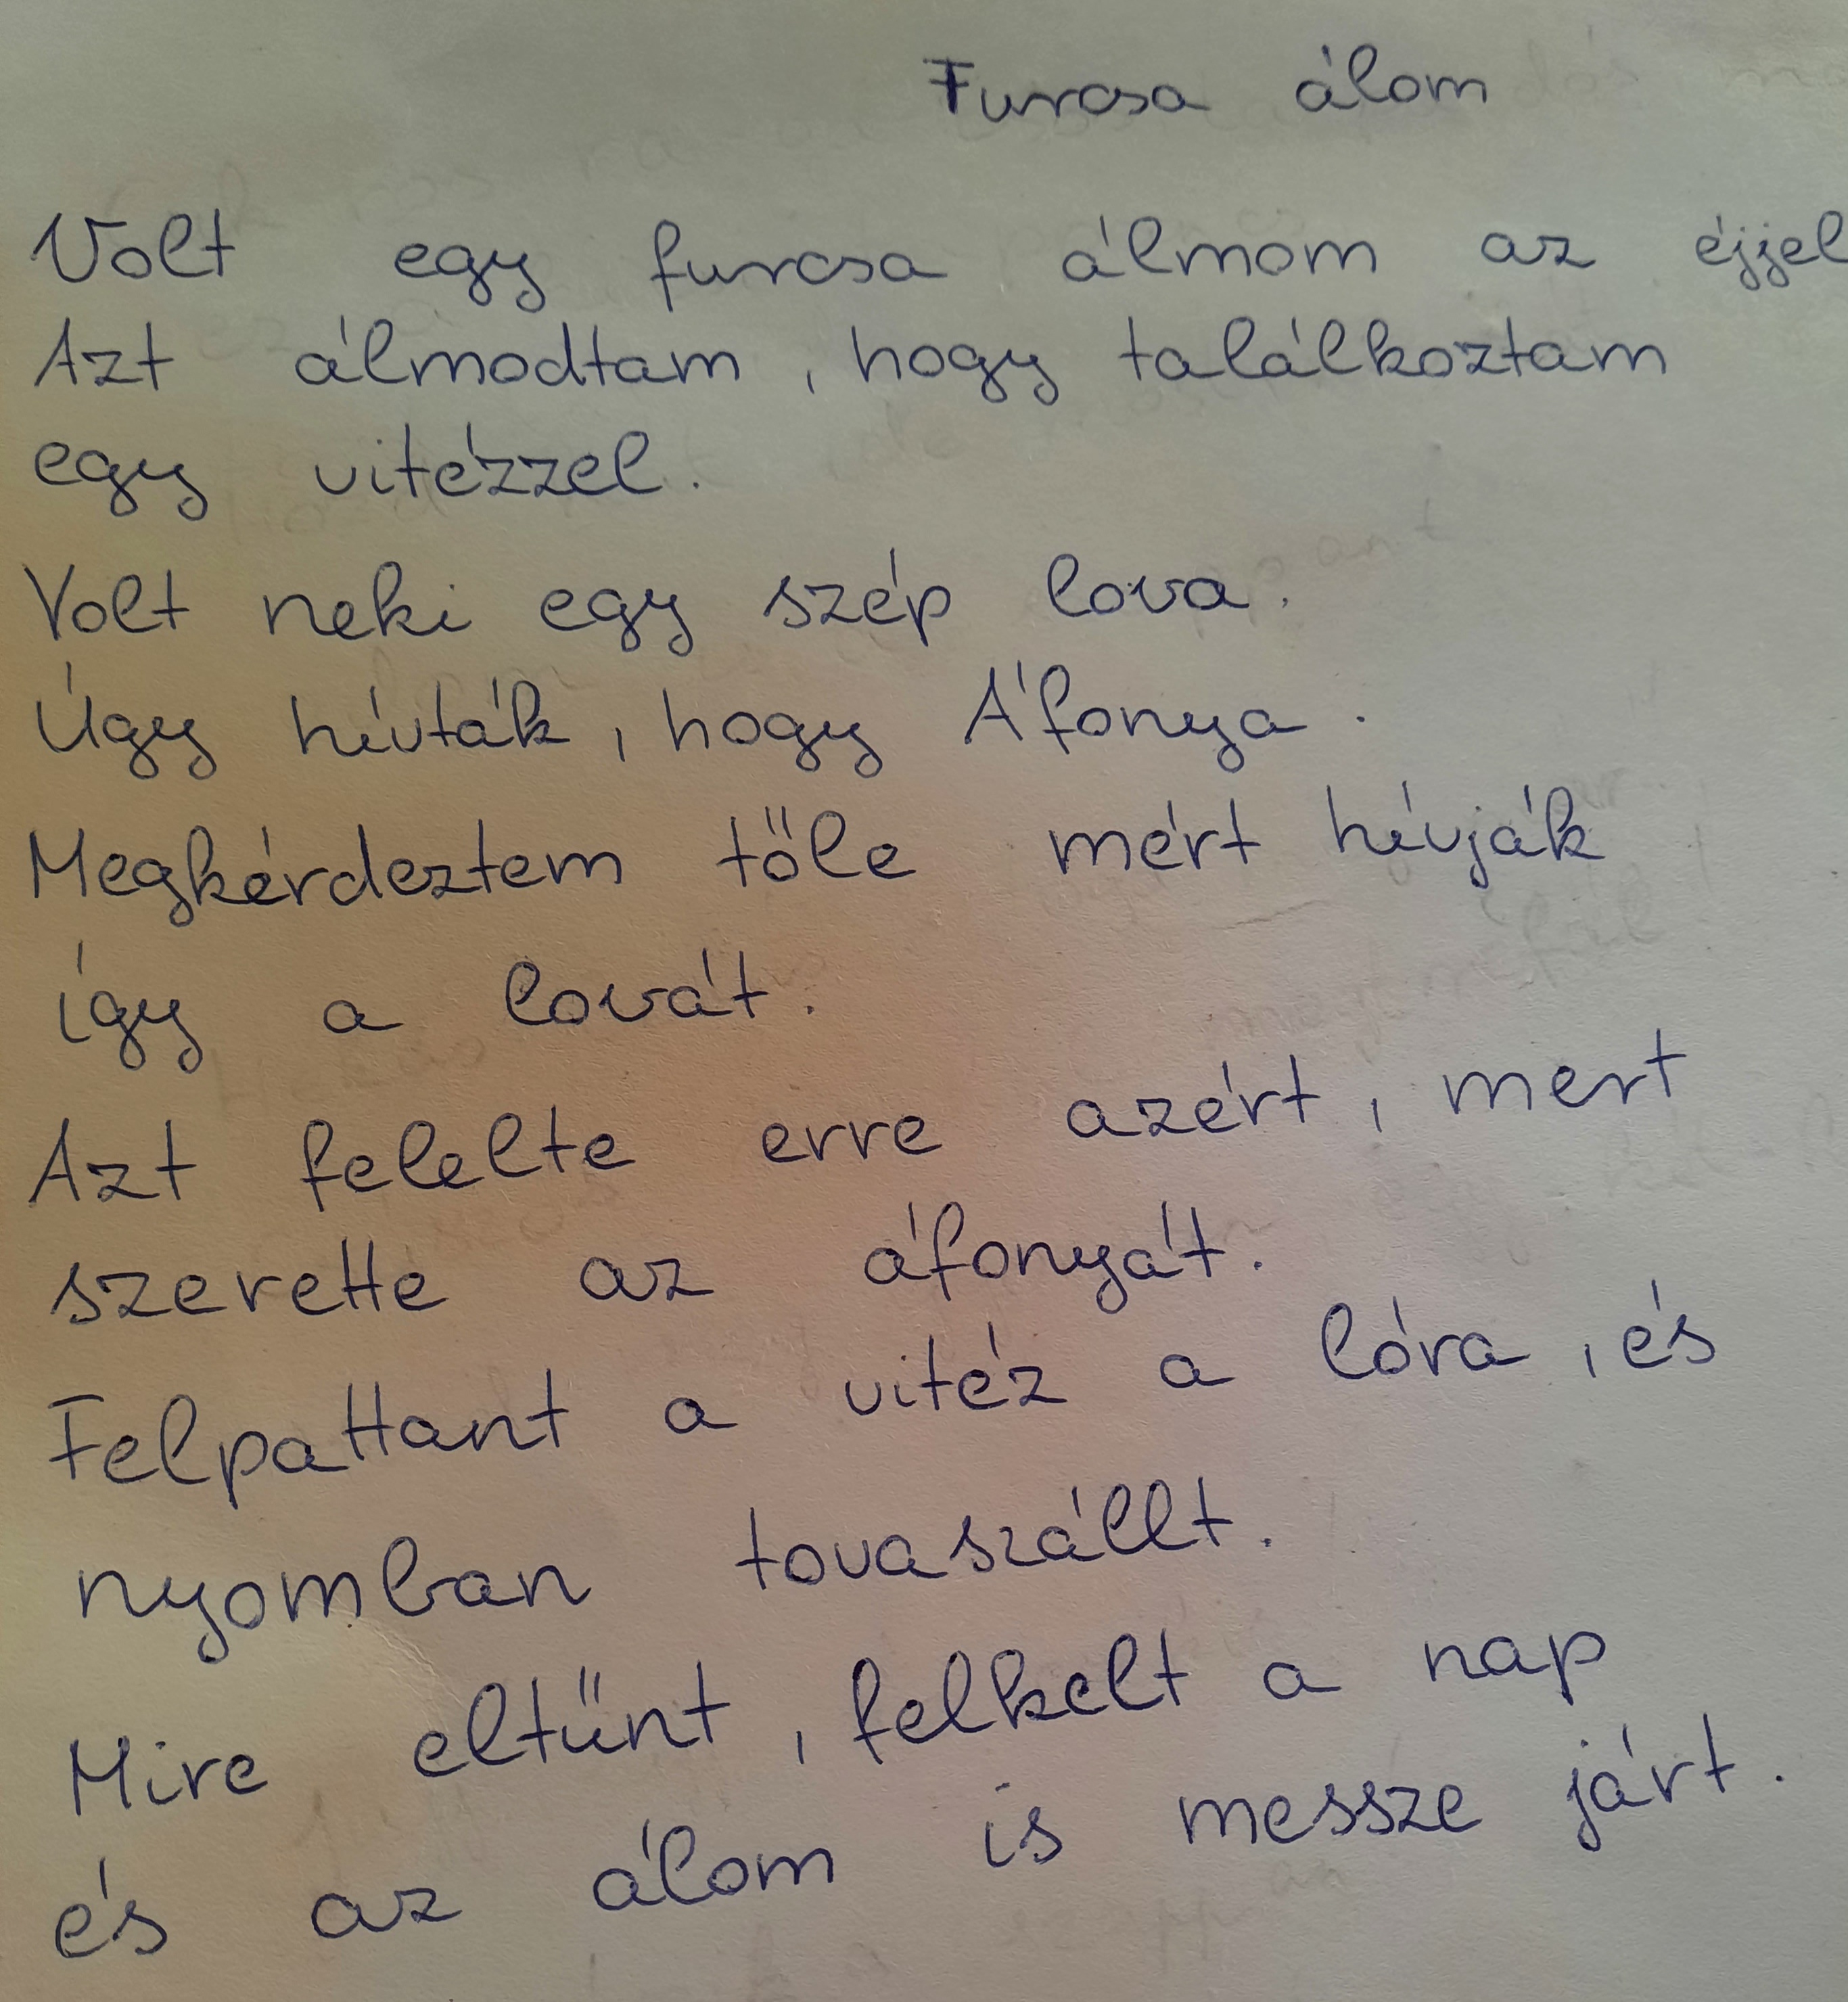 Furcsa álom
Volt egy furcsa álmom az éjjel
Azt álmodtam, hogy találkoztam
egy vitézzel.
Volt neki egy szép lova.
Úgy hívták, hogy Áfonya.
Megkérdeztem tőle mért hívják
így a lovát.
Azt felelte erre azért, mert
szerette az áfonyát.
Felpattant a vitéz a lóra, és
nyomban tovaszállt.
Mire eltűnt, felkelt a nap
és az álom is messze járt.